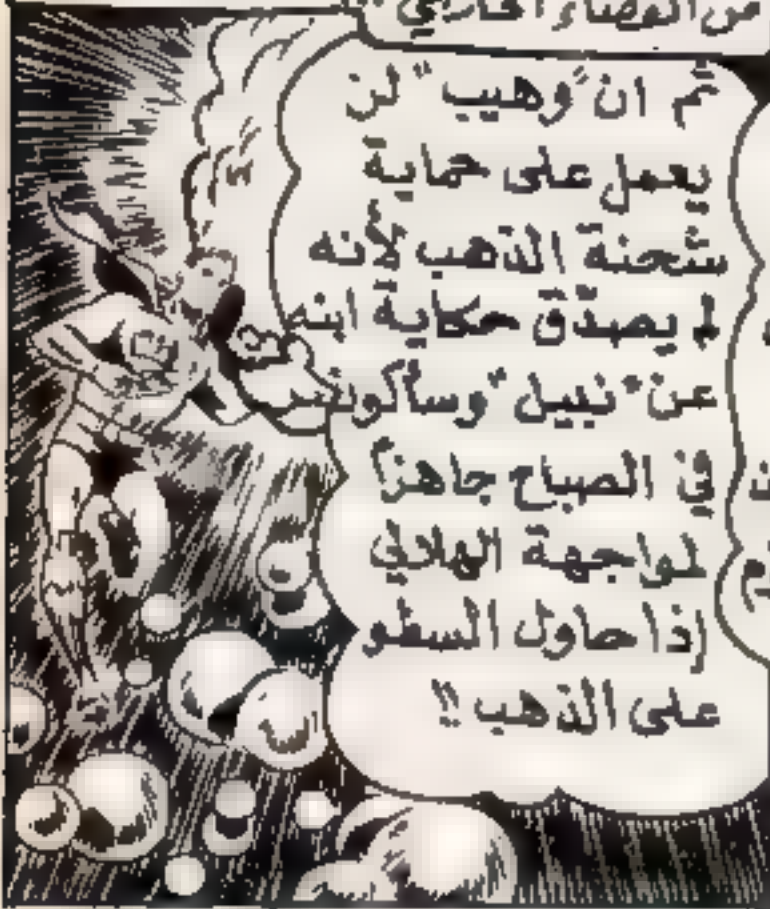 من الفضاء الخارجي
ثم ان "وهيب" لن
يعمل على حماية
شحنة الذهب لأنه
لم يصدّق حكاية ابنه
عن "نبيل" وسأكون
في الصباح جاهزاً
لمواجهة الهلالي
إذا حاول السطو
على الذهب !!